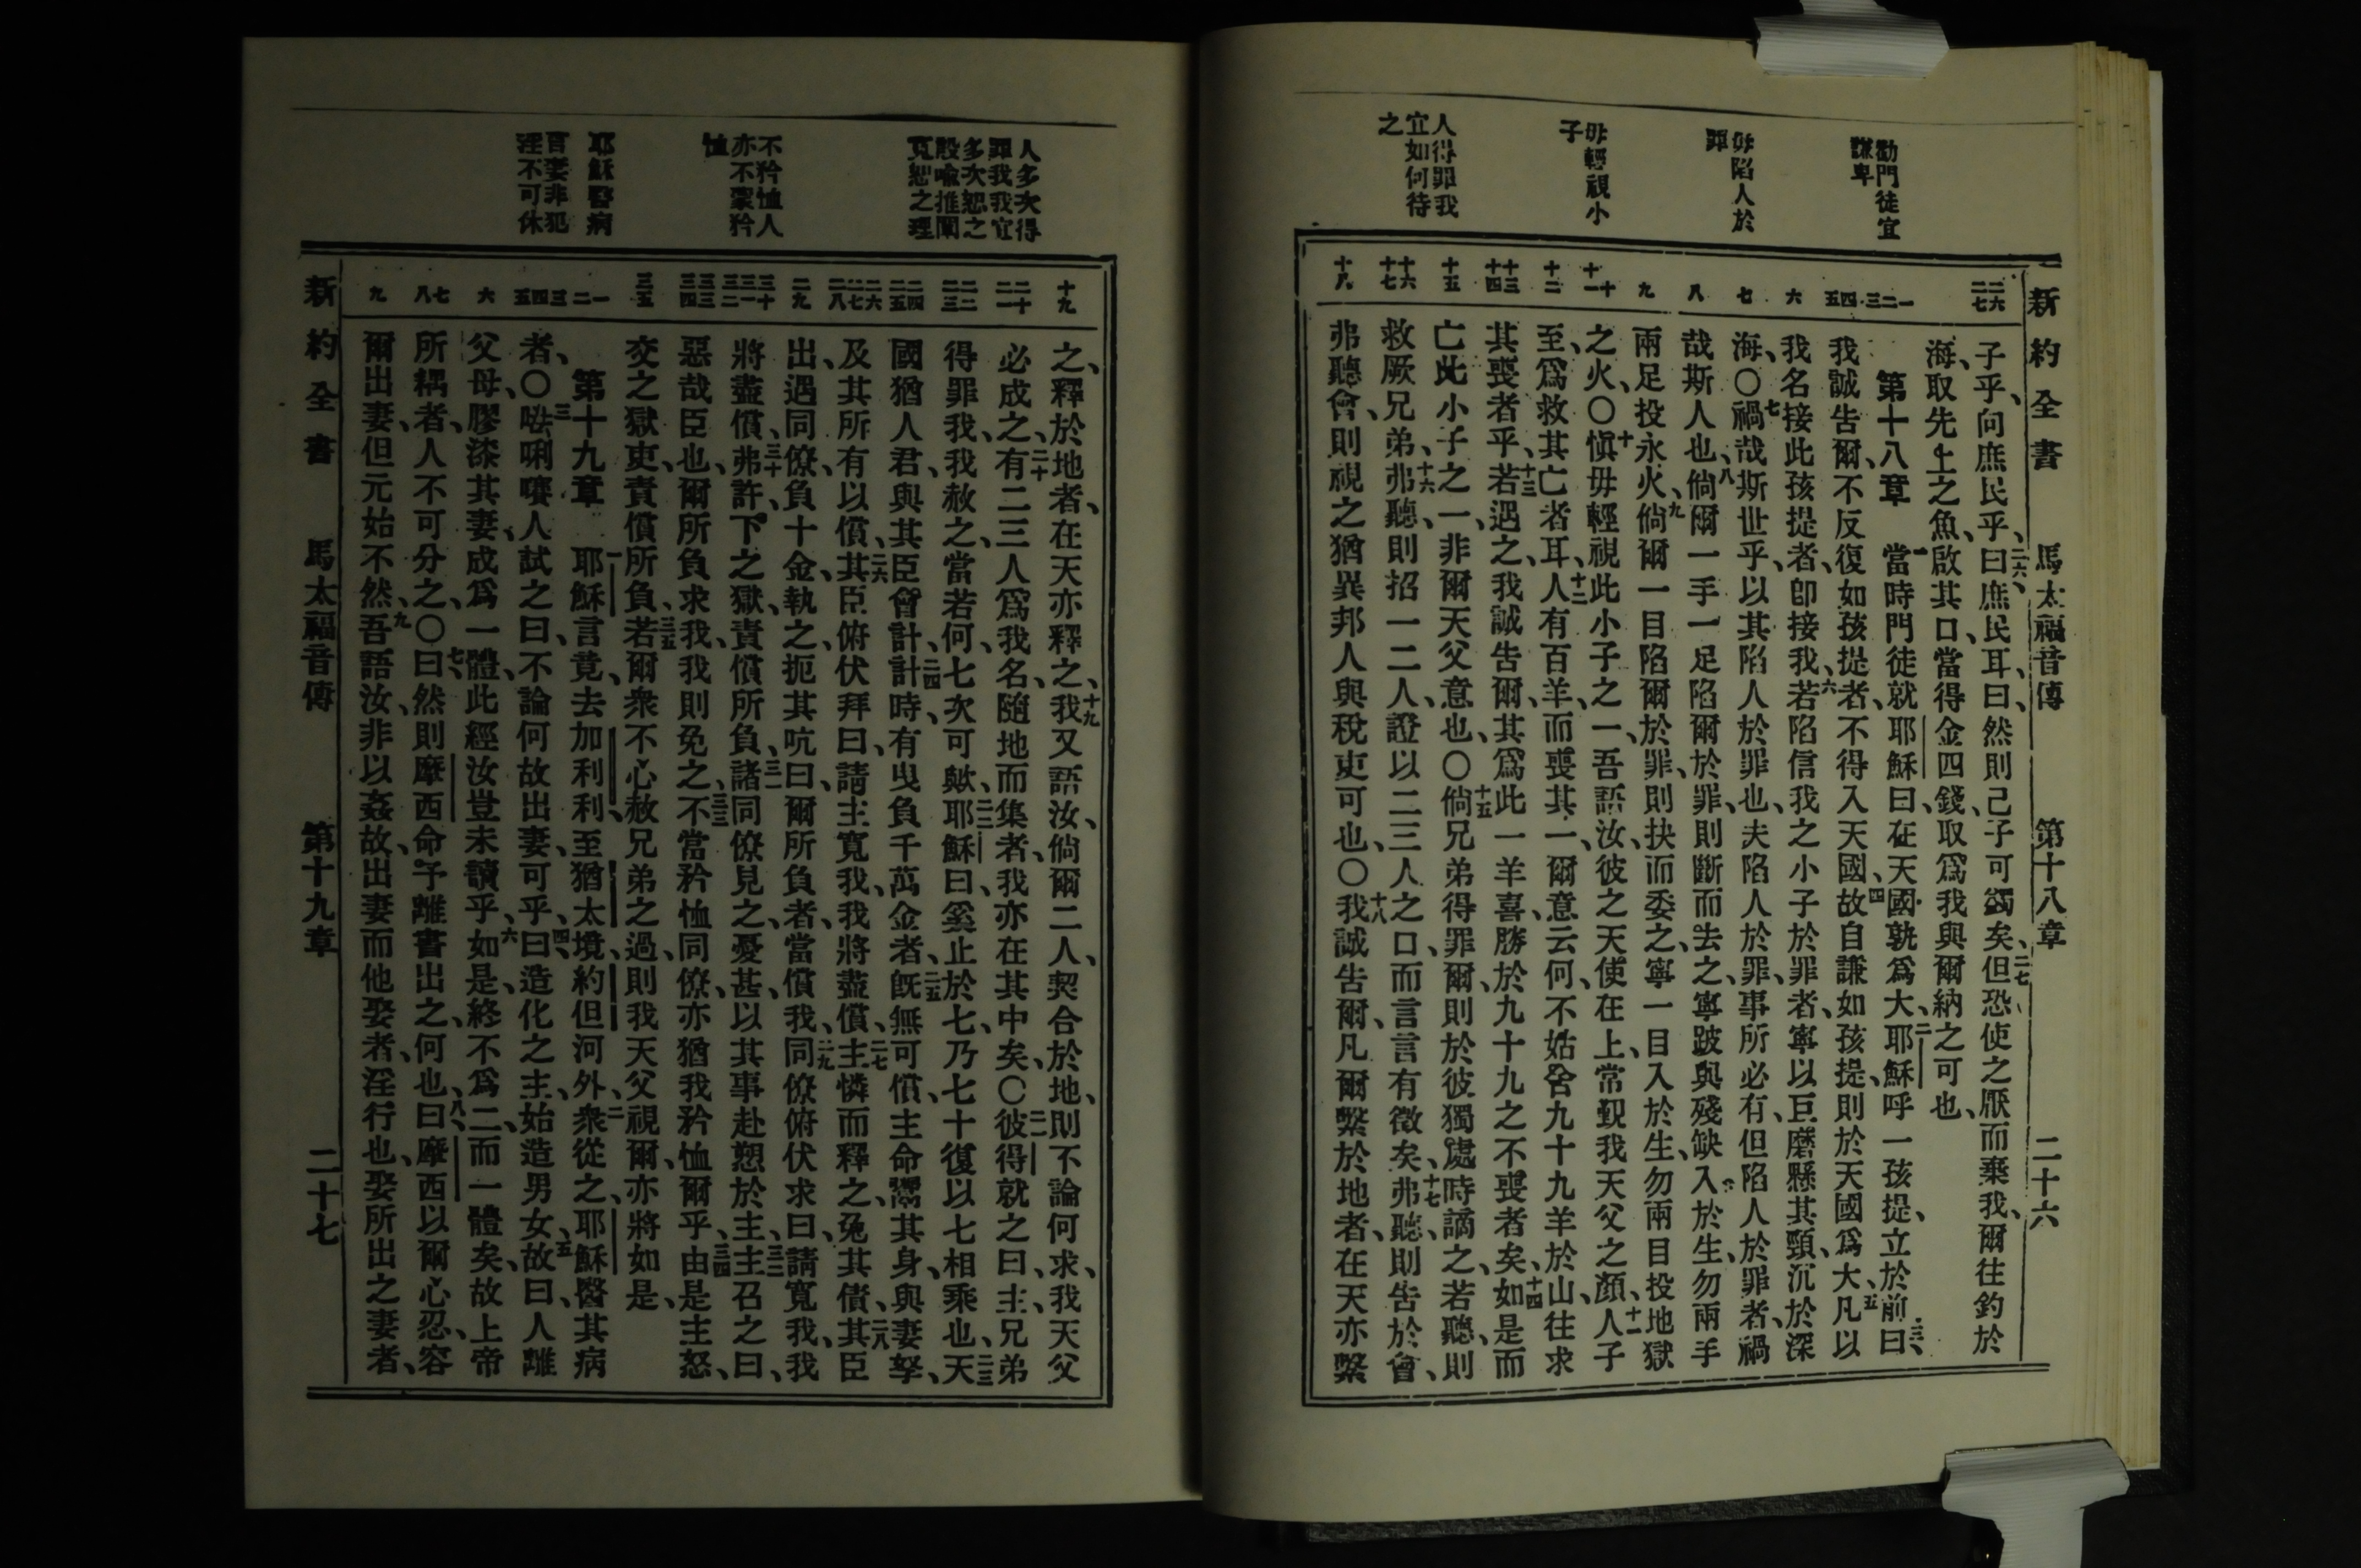 新約全書 馬太福音傳 第十八章 二十六
勸門徒宜
謙卑
毋陷人於
罪
毋輕視小
子
人得罪我
宜如何待
之
二六 二七 一 二 三 四 五 六 七 八 九 十 十一 十二 十三 十四 十五 十六 十七 十八
子乎、向庶民乎、二六曰、庶民耳、曰、然則己子可蠲矣、二七但恐使之厭而棄我、爾往釣於
海、取先上之魚、啟其口、當得金四錢、取爲我與爾納之可也、
第十八章 一當時門徒就耶穌曰、在天國孰爲大、二耶穌呼一孩提、立於前曰、三
我誠告爾、不反復如孩提者、不得入天國、四故自謙如孩提、則於天國爲大、五凡以
我名接此孩提者、卽接我、六若陷信我之小子於罪者、寧以巨磨懸其頸、沉於深
海、〇七禍哉斯世乎、以其陷人於罪也、夫陷人於罪、事所必有、但陷人於罪者、禍
哉斯人也、八倘爾一手一足陷爾於罪、則斷而去之、寧跛與殘缺入於生、勿兩手
兩足投永火、九倘爾一目陷爾於罪、則抉而委之、寧一目入於生、勿兩目投地獄
之火、〇十愼毋輕視此小子之一、吾語汝、彼之天使在上、常覲我天父之顏、十一人子
至、爲救其亡者耳、十二人有百羊、而喪其一、爾意云何、不姑舍九十九羊於山、往求
其喪者乎、十三若遇之、我誠告爾、其爲此一羊喜、勝於九十九之不喪者矣、十四如是而
亡此小子之一、非爾天父意也、〇十五倘兄弟得罪爾、則於彼獨處時謫之、若聽、則
救厥兄弟、十六弗聽、則招一二人、證以二三人之口、而言言有徵矣、十七弗聽、則告於會、
弗聽會、則視之猶異邦人與稅吏可也、〇十八我誠告爾、凡爾繫於地者、在天亦繫
人多次得
罪我我宜
多次恕之
設喩推闡
寬恕之理
不矜恤人
亦不蒙矜
恤
耶穌醫病
言妻非犯
淫不可休
十九 二十 二一 二二 二三 二四 二五 二六 二七 二八 二九 三十 三一 三二 三三 三四 三五 一 二 三 四 五 六 七 八 九
之、釋於地者、在天亦釋之、十九我又語汝、倘爾二人、契合於地、則不論何求、我天父
必成之、二十有二三人爲我名、隨地而集者、我亦在其中矣、〇二一彼得就之曰、主、兄弟
得罪我、我赦之、當若何、七次可歟、二二耶穌曰、奚止於七、乃七十復以七相乘也、二三天
國猶人君、與其臣會計、二四計時、有曳負千萬金者、二五旣無可償、主命鬻其身、與妻孥、
及其所有以償、二六其臣俯伏拜曰、請主寬我、我將盡償、二七主憐而釋之、免其債、二八其臣
出、遇同僚、負十金、執之、扼其吭曰、爾所負者、當償我、二九同僚俯伏求曰、請寬我、我
將盡償、三十弗許、下之獄、責償所負、三一諸同僚見之、憂甚、以其事赴愬於主、三二主召之曰、
惡哉臣也、爾所負求我、我則免之、三三不當矜恤同僚、亦猶我矜恤爾乎、三四由是主怒、
交之獄吏、責償所負、三五若爾衆不心赦兄弟之過、則我天父視爾、亦將如是、
第十九章 一耶穌言竟、去加利利、至猶太境、約但河外、二衆從之、耶穌醫其病
者、〇三𠵽唎㘔人試之曰、不論何故出妻、可乎、四曰、造化之主、始造男女、五故曰、人離
父母、膠漆其妻、成爲一體、此經汝豈未讀乎、六如是、終不爲二、而一體矣、故上帝
所耦者、人不可分之、〇七曰、然則摩西命予離書出之、何也、八曰、摩西以爾心忍、容
爾出妻、但元始不然、九吾語汝、非以姦故、出妻而他娶者、淫行也、娶所出之妻者、
新約全書 馬太福音傳 第十九章 二十七